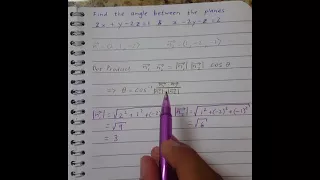 Find the angle between the planes
2x + y - 2z = 1 & x - 2y - z = 2
Dot Product n₁ · n₂ = |n₁| |n₂| cos θ
⇒ θ = cos⁻¹ n₁ · n₂ / |n₁| |n₂|
|n₁| = √2² + 1² + (-2)² |n₂| = √1² + (-2)² + (-1)²
= √9 = √6
= 3